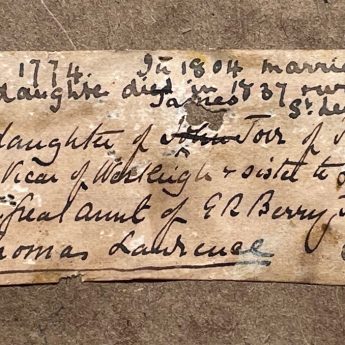 1774. In 1804 marrie
daughte died in 1837
James St.
daughter of John Tov of
Vicar of Westleigh & sister to
Great aunt of E R Berry
homas Lawrence